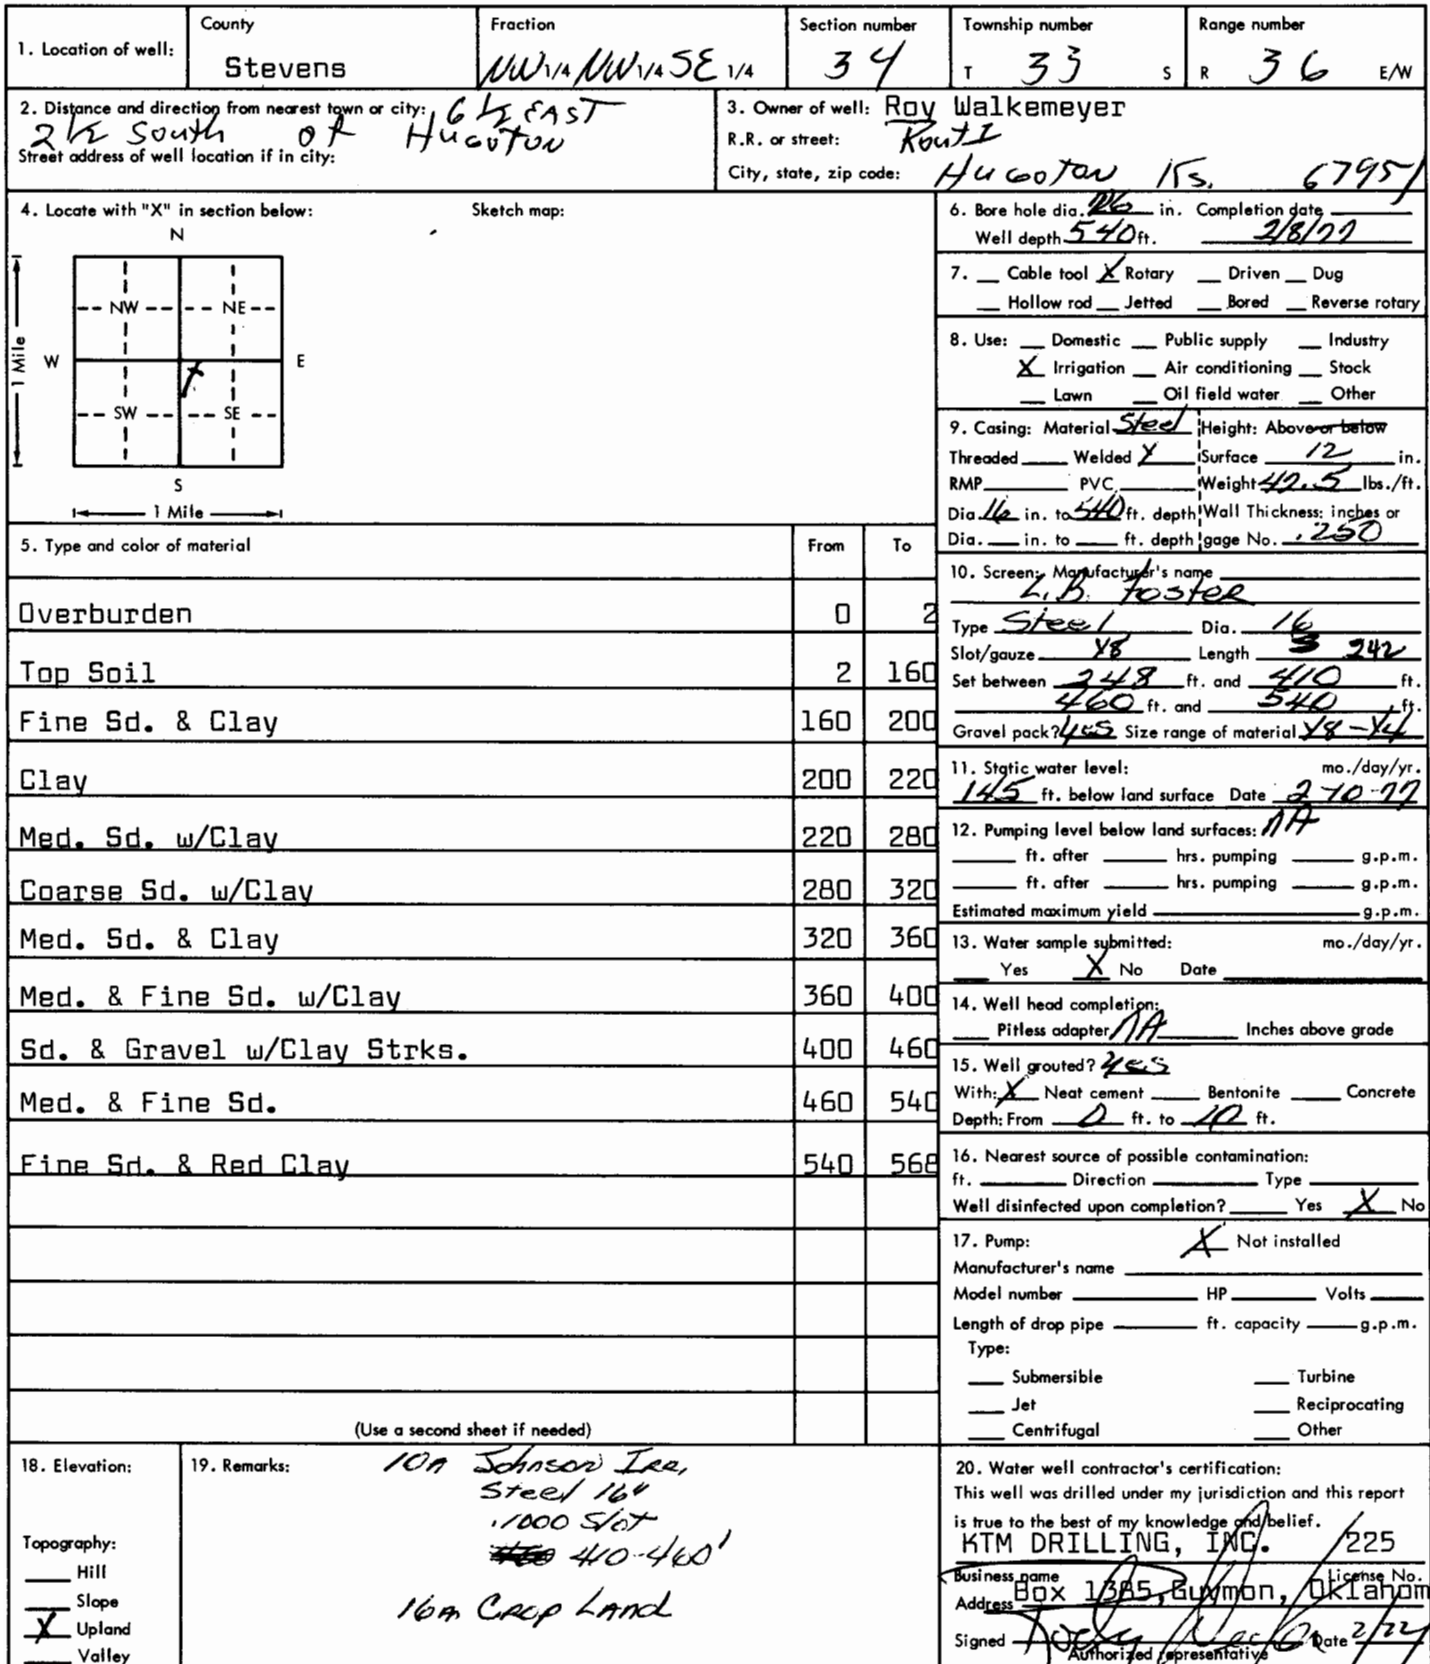 1. Location of well:
County
Stevens
Fraction
NW 1/4 NW 1/4 SE 1/4
Section number
34
Township number
T 33 S
Range number
R 36 E/W
2. Distance and direction from nearest town or city: 6 1/2 EAST
2 1/2 South of Hugoton
Street address of well location if in city:
3. Owner of well: Roy Walkemeyer
R.R. or street: Rout 1
City, state, zip code: Hugoton Ks. 67951
4. Locate with "X" in section below: Sketch map:
N
NW NE
W E
X
SW SE
S
1 Mile
1 Mile
5. Type and color of material From To
Overburden 0 2
Top Soil 2 160
Fine Sd. & Clay 160 200
Clay 200 220
Med. Sd. w/Clay 220 280
Coarse Sd. w/Clay 280 320
Med. Sd. & Clay 320 360
Med. & Fine Sd. w/Clay 360 400
Sd. & Gravel w/Clay Strks. 400 460
Med. & Fine Sd. 460 540
Fine Sd. & Red Clay 540 568
(Use a second sheet if needed)
6. Bore hole dia. 26 in. Completion date
Well depth 540 ft. 2/8/77
7. Cable tool X Rotary Driven Dug
Hollow rod Jetted Bored Reverse rotary
8. Use: Domestic Public supply Industry
X Irrigation Air conditioning Stock
Lawn Oil field water Other
9. Casing: Material Steel Height: Above or below
Threaded Welded X Surface 12 in.
RMP PVC Weight 42.5 lbs./ft.
Dia. 16 in. to 540 ft. depth Wall Thickness: inches or
Dia. in. to ft. depth gage No. .250
10. Screen: Manufacturer's name
L.B. Foster
Type Steel Dia. 16
Slot/gauze 1/8 Length 242
Set between 248 ft. and 410 ft.
460 ft. and 540 ft.
Gravel pack? yes Size range of material 1/8 - 1/4
11. Static water level: mo./day/yr.
145 ft. below land surface Date 2-10-77
12. Pumping level below land surfaces: NA
ft. after hrs. pumping g.p.m.
ft. after hrs. pumping g.p.m.
Estimated maximum yield g.p.m.
13. Water sample submitted: mo./day/yr.
Yes X No Date
14. Well head completion:
Pitless adapter NA Inches above grade
15. Well grouted? yes
With: X Neat cement Bentonite Concrete
Depth: From 0 ft. to 10 ft.
16. Nearest source of possible contamination:
ft. Direction Type
Well disinfected upon completion? Yes X No
17. Pump: X Not installed
Manufacturer's name
Model number HP Volts
Length of drop pipe ft. capacity g.p.m.
Type:
Submersible Turbine
Jet Reciprocating
Centrifugal Other
18. Elevation:
Topography:
Hill
Slope
X Upland
Valley
19. Remarks: 10A Johnson Irr,
Steel 16"
.1000 Slot
410-460'
16A Crop Land
20. Water well contractor's certification:
This well was drilled under my jurisdiction and this report
is true to the best of my knowledge and belief.
KTM DRILLING, INC. 225
Business name License No.
Address Box 1385, Guymon, Oklahom
Signed Date 2/22
Authorized representative